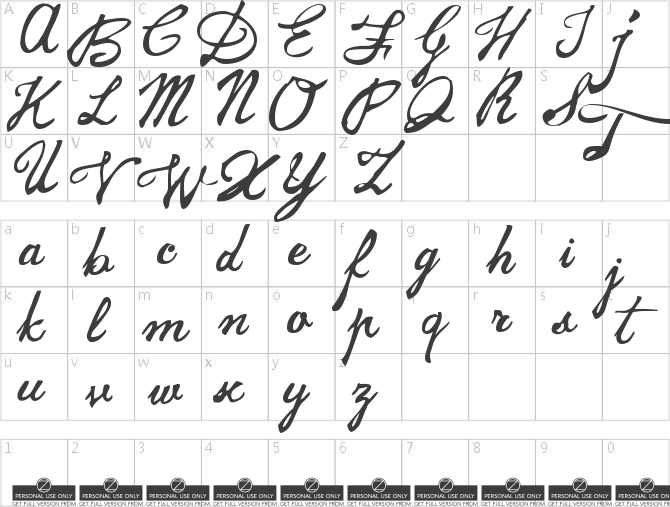 A B C D E F G H I J
A B C D E F G H I J
K L M N O P Q R S
K L M N O P Q R S T
U V W X Y Z
U V W X Y Z
a b c d e f g h i j
a b c d e f g h i j
k l m n o p q r s t
k l m n o p q r s t
u v w x y z
u v w x y z
1 2 3 4 5 6 7 8 9 0
PERSONAL USE ONLY PERSONAL USE ONLY PERSONAL USE ONLY PERSONAL USE ONLY PERSONAL USE ONLY PERSONAL USE ONLY PERSONAL USE ONLY PERSONAL USE ONLY PERSONAL USE ONLY PERSONAL
GET FULL VERSION FROM GET FULL VERSION FROM GET FULL VERSION FROM GET FULL VERSION FROM GET FULL VERSION FROM GET FULL VERSION FROM GET FULL VERSION FROM GET FULL VERSION FROM GET FULL VERSION FROM GET FULL